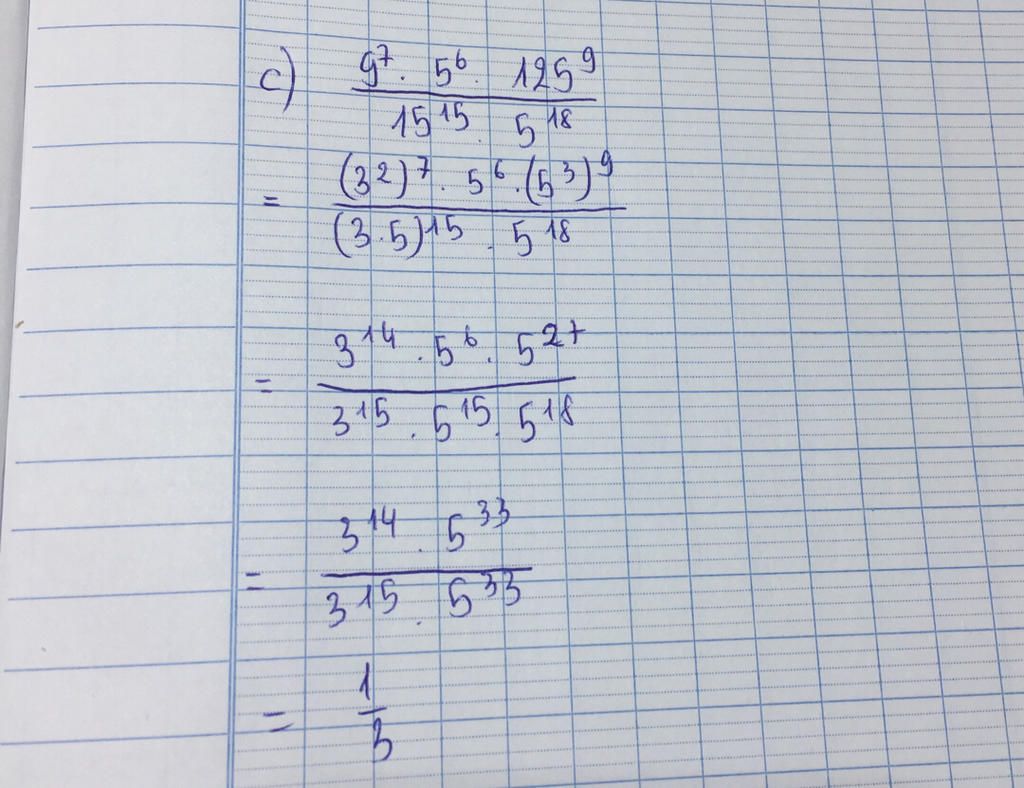 c) \frac{9^7 . 5^6 . 125^9}{15^{15} . 5^{18}}
= \frac{(3^2)^7 . 5^6 . (5^3)^9}{(3.5)^{15} . 5^{18}}
= \frac{3^{14} . 5^6 . 5^{27}}{3^{15} . 5^{15} . 5^{18}}
= \frac{3^{14} . 5^{33}}{3^{15} . 5^{33}}
= \frac{1}{3}